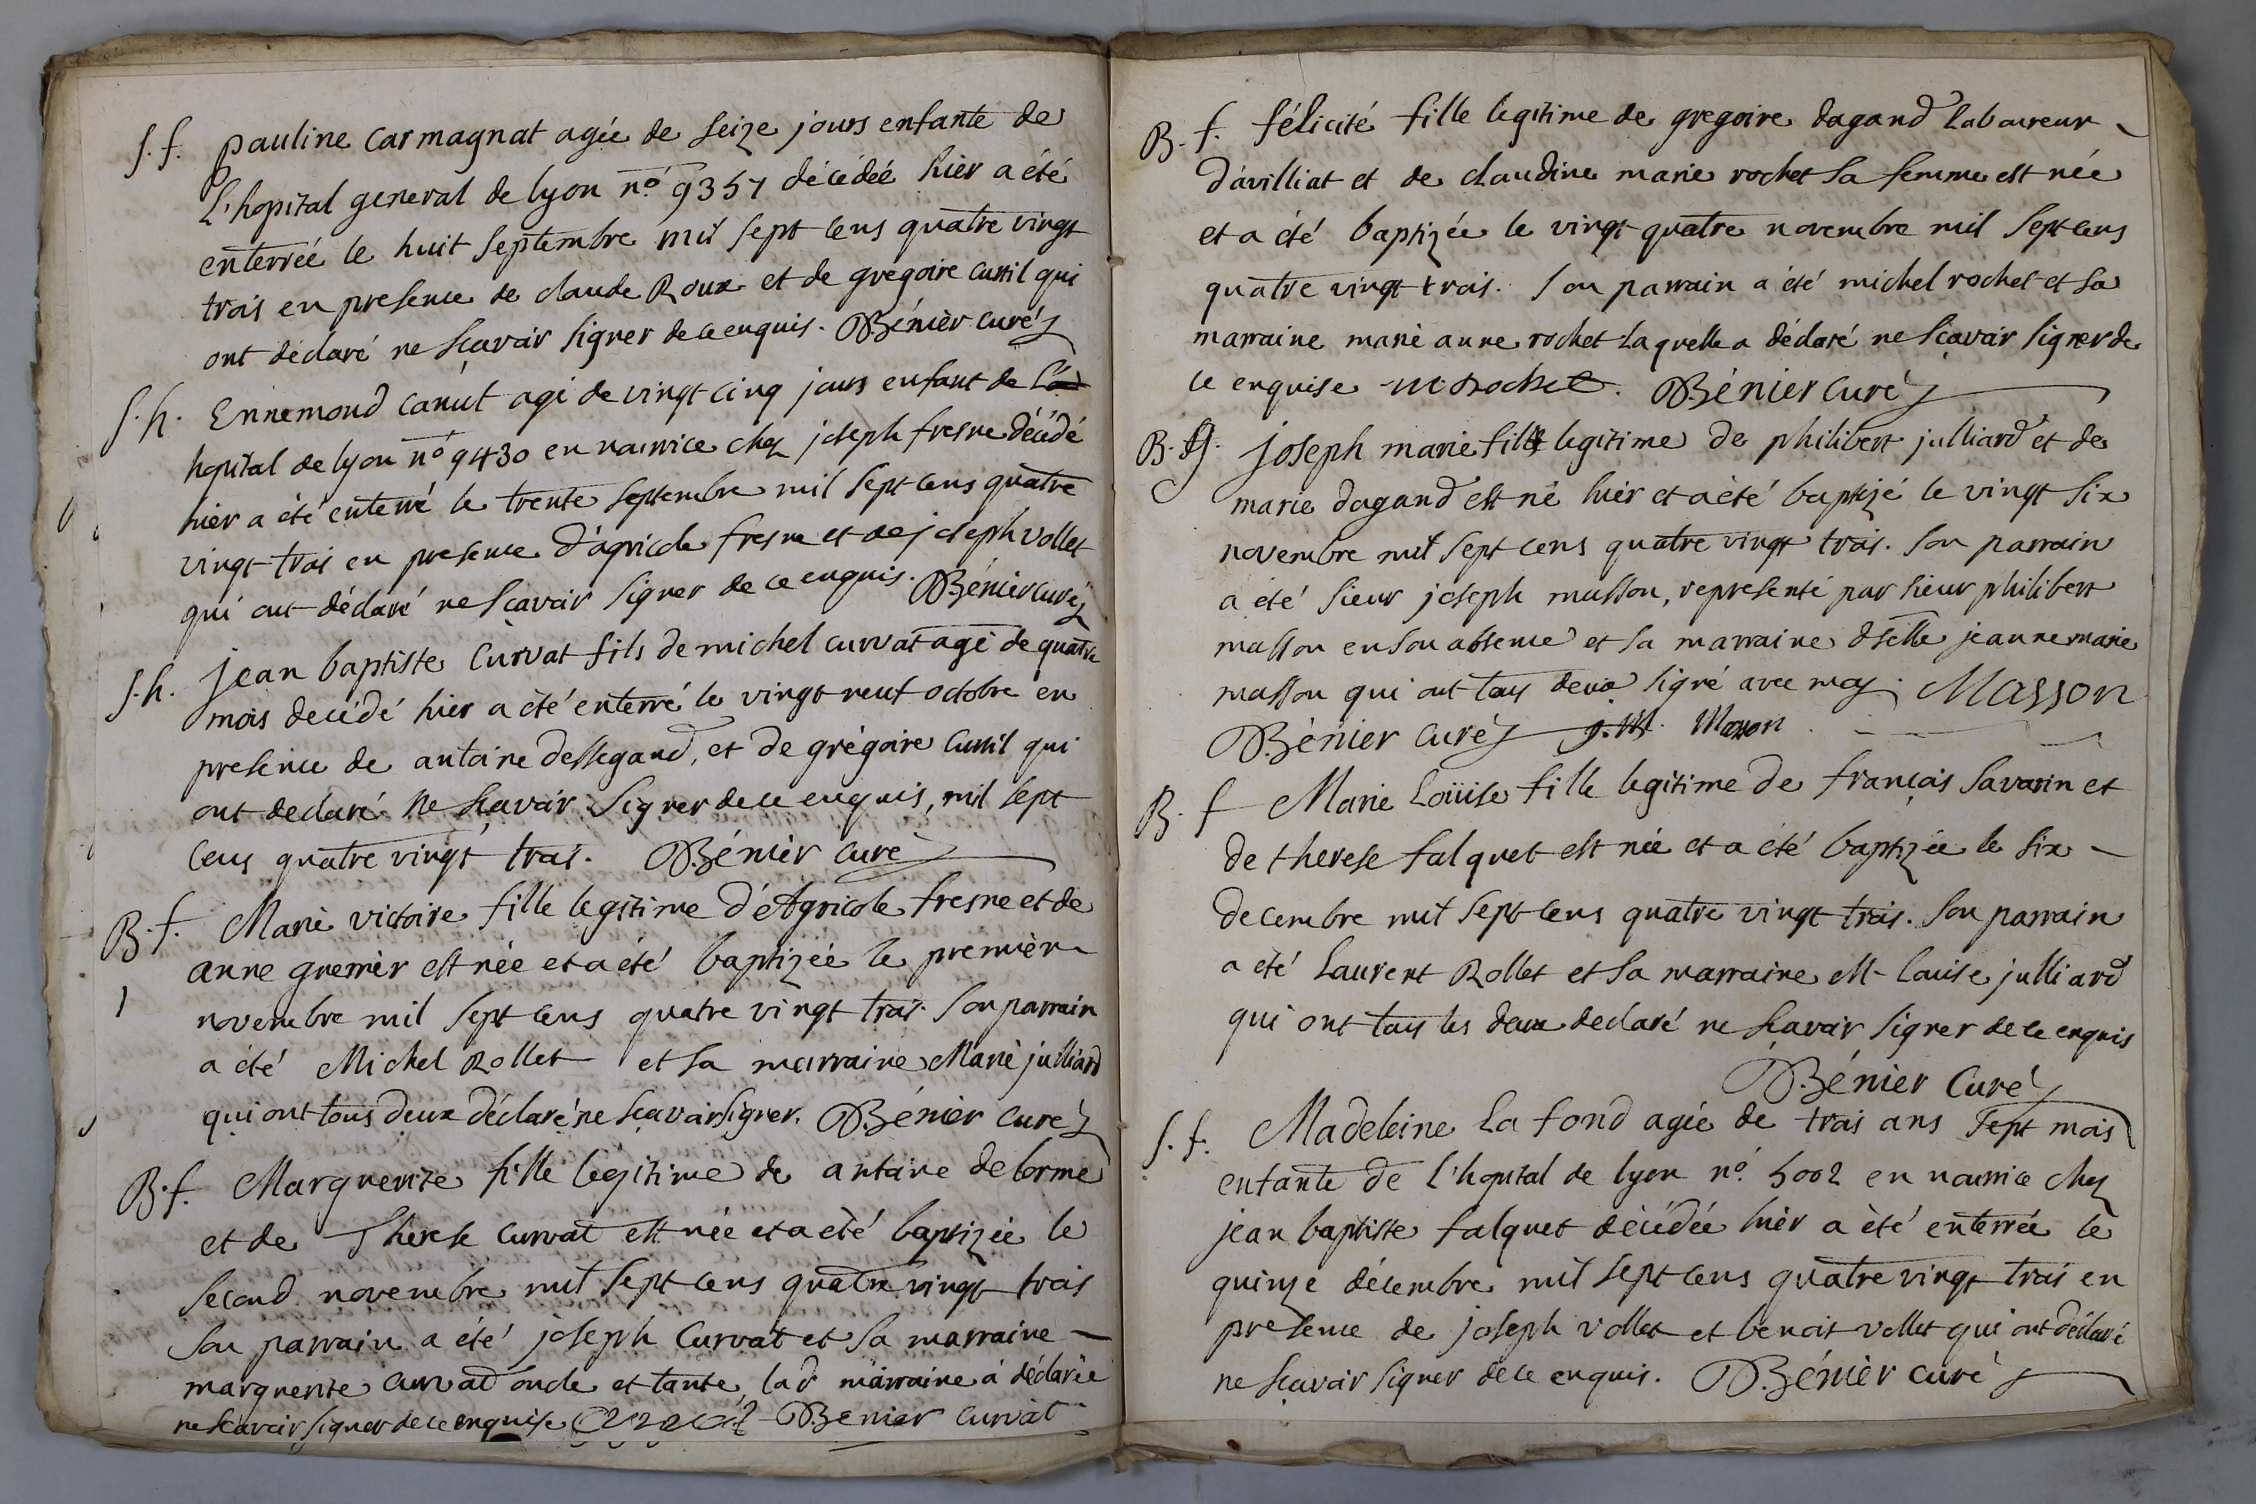 S. f. pauline Carmagnat agée de seize jours enfante de
L'hopital general de lyon n.o 9357 décédée hièr a été
enterrée le huit septembre mil sept cens quatre vingt
trois en presence de claude Roux et de gregoire curtil qui
ont déclaré ne sçavoir signer de ce enquis. Bénièr curé
S. h. Ennemond canut agé de vingt cinq jours enfant de L'
hopital de lyon n.o 9430 en nourrice chez joseph fresne décédé
hièr a été enterré le trente septembre mil sept cens quatre
vingt trois en presence d'agricole fresne et de joseph vollet
qui ont déclaré ne sçavoir signer de ce enquis. Bénièr curé
S. h. jean baptiste Curvat fils de michel curvat agé de quatre
mois decédé hièr a été enterré le vingt neuf octobre en
presence de antoine dessegand, et de grégoire curtil qui
ont declaré ne sçavoir signer de ce enquis, mil sept
cens quatre vingt trois. Bénièr curé
B. f. Marie victoire fille legitime d'Agricole fresne et de
anne grenièr est née et a été baptizée le premièr
novembre mil sept cens quatre vingt trois. Son parrain
a été Michel Rollet et sa marraine Marie julliard
qui ont tous deux déclaré ne sçavoir signer. Bénièr curé
B. f. Marguerite fille legitime de antoine delorme
et de Therese Curvat est née et a été baptizée le
second novembre mil sept cens quatre vingt trois
Son parrain a été joseph Curvat et sa marraine
marguerite curvat oncle et tante, lad marraine a déclarée
ne sçavoir signer de ce enquise Bénier Curvat
B. f. félicité fille legitime de gregoire dagand laboureur
d'avilliat et de claudine marie rochet sa femme est née
et a été baptizée le vingt quatre novembre mil sept cens
quatre vingt trois. Son parrain a été michel rochet et sa
marraine marie anne rochet laquelle a déclaré ne sçavoir signer de
ce enquise m rochet. Bénier curé
B. g. joseph marie fils legitime de philibert julliard et de
marie dagand est né hièr et a été baptizé le vingt six
novembre mil sept cens quatre vingt trois. Son parrain
a été sieur joseph masson, representé par sieur philibert
masson en son absence et sa marraine dselle jeanne marie
masson qui ont tous deux signé avec moy. Masson
Bénier curé j. M. Masson
B. f Marie Loüise fille legitime de françois Savarin et
de therese falquet est née et a été baptizée le six
decembre mil sept cens quatre vingt trois. Son parrain
a été Laurent Rollet et sa marraine M- Louise julliard
qui ont tous les deux declaré ne sçavoir signer de ce enquis
Bénier Curé
S. f. Madeleine La fond agée de trois ans sept mois
enfante de L'hopital de lyon n.o 5002 en nourrice chez
jean baptiste falquet décédée hièr a été enterrée le
quinze décembre mil sept cens quatre vingt trois en
presence de joseph vollet et benoit vollet qui ont déclaré
ne sçavoir signer de ce enquis. Bénièr curé